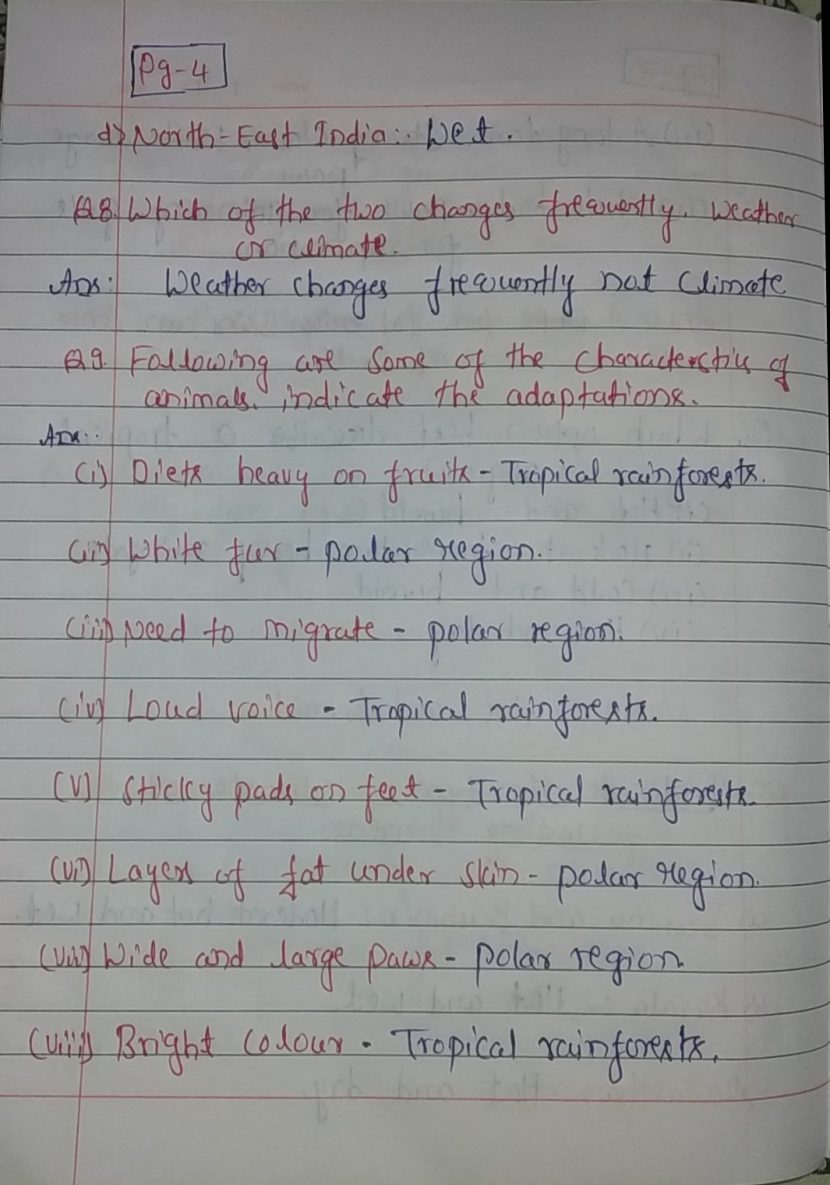 Pg-4
d) North-East India:- Wet.
Q8. Which of the two changes frequently. Weather
or climate.
Ans: Weather changes frequently not climate
Q9. Following are some of the characterstics of
animals. indicate the adaptations.
Ans:-
(i) Diets heavy on fruits - Tropical rainforests.
(ii) White fur - polar region.
(iii) Need to migrate - polar region.
(iv) Loud voice - Tropical rainforests.
(v) Sticky pads on feet - Tropical rainforests.
(vi) Layers of fat under skin - polar region.
(vii) Wide and large paws - polar region
(viii) Bright colour - Tropical rainforests.